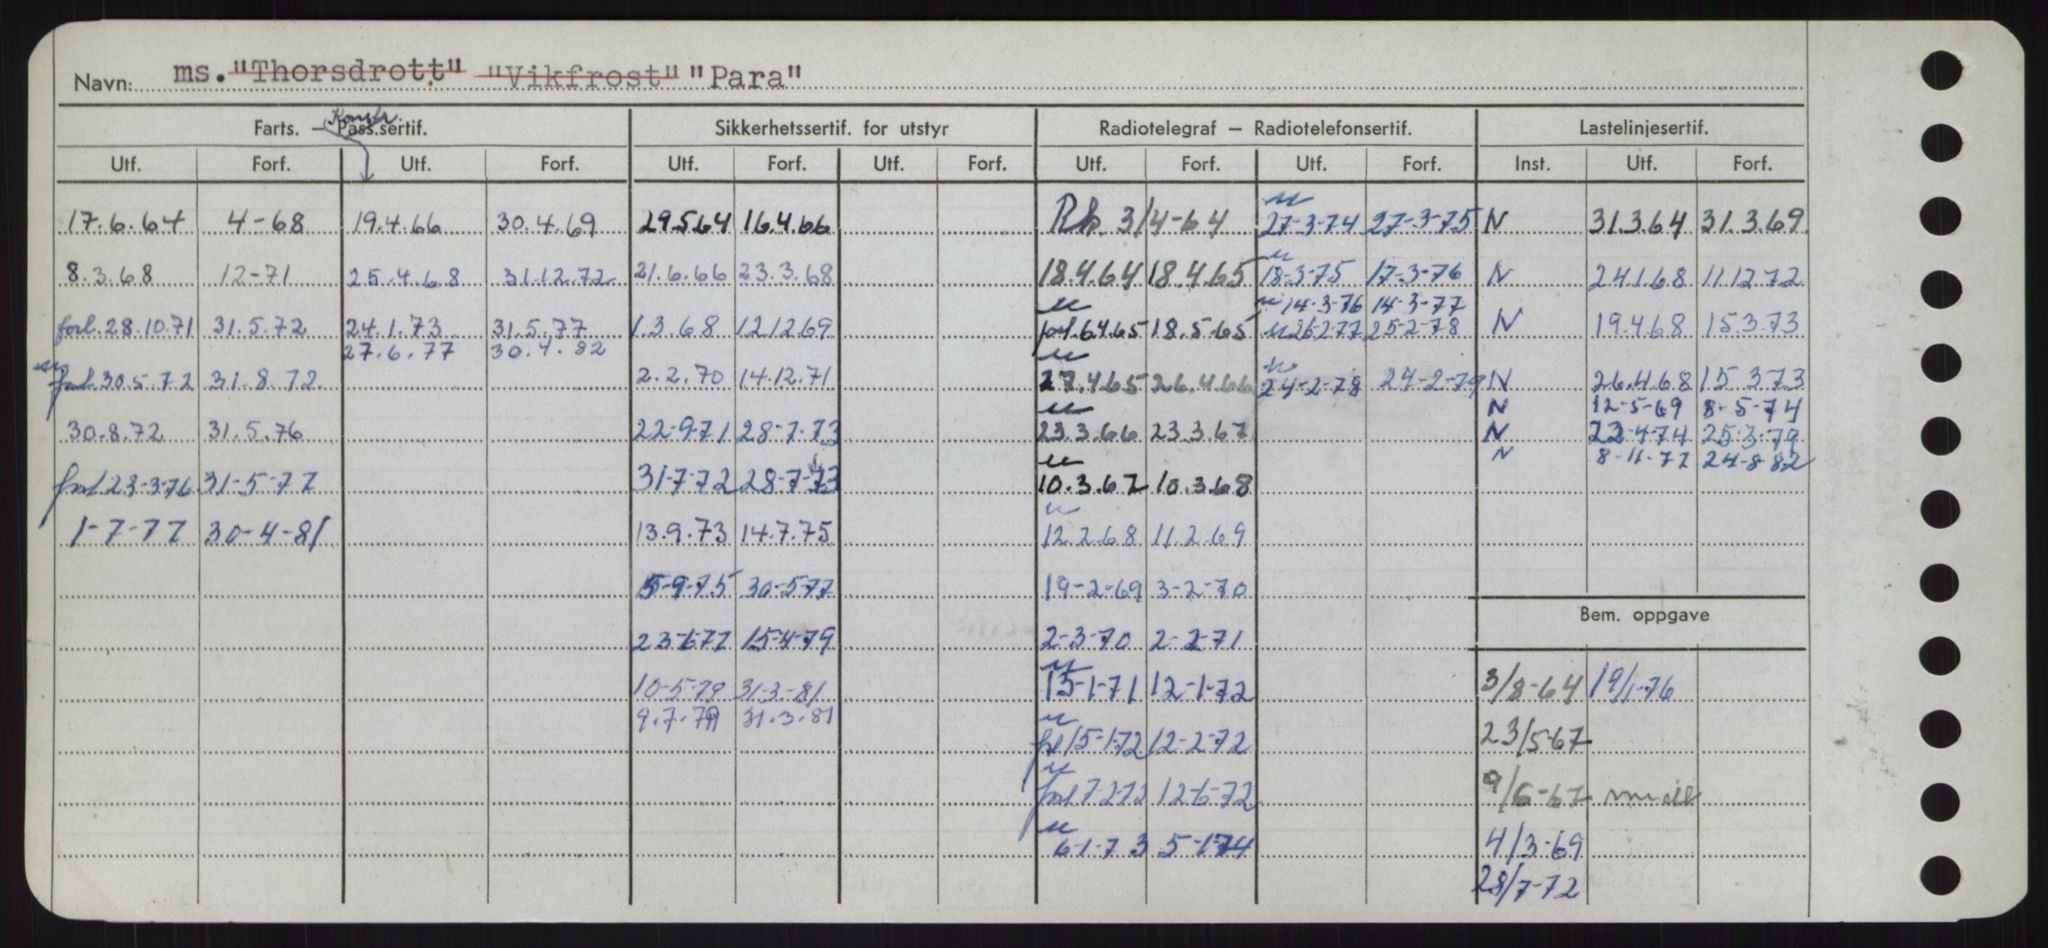 Navn: ms. "Thorsdrott" "Vikfrost" "Para"
Konstr.
Farts. — Pass.sertif. Sikkerhetssertif. for utstyr Radiotelegraf — Radiotelefonsertif. Lastelinjesertif.
Utf. Forf. Utf. Forf. Utf. Forf. Utf. Forf. Utf. Forf. Utf. Forf. Inst. Utf. Forf.
17.6.64 4-68 19.4.66 30.4.69 29.5.64 16.4.66 3/4-64 27-3-74 27-3-75 N 31.3.64 31.3.69
8.3.68 12-71 25.4.68 31.12.72 21.6.66 23.3.68 18.4.64 18.4.65 18-3-75 17-3-76 N 24.1.68 11.12.72
14-3-76 14-3-77
forl. 28.10.71 31.5.72 24.1.73 31.5.77 1.3.68 12.12.69 forl. 6.4.65 18.5.65 26-2-77 25-2-78 N 19.4.68 15.3.73
27.6.77 30.4.82
forl. 30.5.72 31.8.72 2.2.70 14.12.71 27.4.65 26.4.66 24-2-78 24-2-79 N 26.4.68 15.3.73
N 12-5-69 8-5-74
30.8.72 31.5.76 22-9-71 28-7-73 23.3.66 23.3.67 N 22-4-74 25-3-79
N 8-11-77 24-8-82
forl 23-3-76 31-5-77 31-7-72 28-7-73 10.3.67 10.3.68
1-7-77 30-4-81 13.9.73 14.7.75 12.2.68 11.2.69
5-9-75 30-5-77 19-2-69 3-2-70
Bem. oppgave
23-6-77 15-4-79 2-3-70 2-2-71
10-5-79 31-3-81 15-1-71 12-1-72 3/8-64 19/1-76
9.7.79 31.3.81
forl 15-1-72 12-2-72 23/5-67
forl 7-2-72 12-6-72 9/6-67
6-1-73 5-1-74 4/3-69
28/7-72